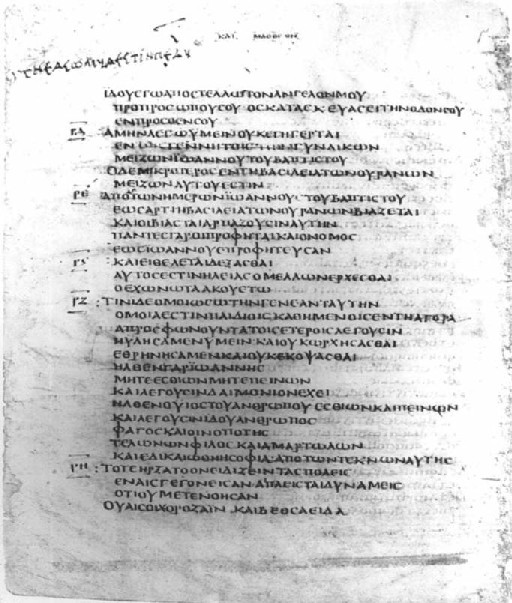 ΚΑΤ ΜΑΘΘΕΟΝ
ΙΔΟΥ ΕΓΩ ΑΠΟΣΤΕΛΛΩ ΤΟΝ ΑΝΓΕΛΟΝ ΜΟΥ
ΠΡΟ ΠΡΟΣΩΠΟΥ ΣΟΥ ΟΣ ΚΑΤΑΣΚΕΥΑΣΕΙ ΤΗΝ ΟΔΟΝ ΣΟΥ
ΕΝΠΡΟΣΘΕΝ ΣΟΥ
ΡΔ ΑΜΗΝ ΛΕΓΩ ΥΜΕΙΝ ΟΥΚ ΕΓΗΓΕΡΤΑΙ
ΕΝ ΓΕΝΝΗΤΟΙΣ ΓΥΝΑΙΚΩΝ
ΜΕΙΖΩΝ ΙΩΑΝΝΟΥ ΤΟΥ ΒΑΠΤΙΣΤΟΥ
Ο ΔΕ ΜΙΚΡΟΤΕΡΟΣ ΕΝ ΤΗ ΒΑΣΙΛΕΙΑ ΤΩΝ ΟΥΡΑΝΩΝ
ΜΕΙΖΩΝ ΑΥΤΟΥ ΕΣΤΙΝ
ΡΕ ΑΠΟ ΤΩΝ ΗΜΕΡΩΝ ΙΩΑΝΝΟΥΣ ΤΟΥ ΒΑΠΤΙΣΤΟΥ
ΕΩΣ ΑΡΤΙ Η ΒΑΣΙΛΕΙΑ ΤΩΝ ΟΥΡΑΝΩΝ ΒΙΑΖΕΤΑΙ
ΚΑΙ ΟΙ ΒΙΑΣΤΑΙ ΑΡΠΑΖΟΥΣΙΝ ΑΥΤΗΝ
ΠΑΝΤΕΣ ΓΑΡ ΟΙ ΠΡΟΦΗΤΑΙ ΚΑΙ Ο ΝΟΜΟΣ
ΕΩΣ ΙΩΑΝΝΟΥ ΕΠΡΟΦΗΤΕΥΣΑΝ
ΚΑΙ ΕΙ ΘΕΛΕΤΑΙ ΔΕΞΑΣΘΑΙ
ΑΥΤΟΣ ΕΣΤΙΝ ΗΛΕΙΑΣ Ο ΜΕΛΛΩΝ ΕΡΧΕΣΘΑΙ
Ο ΕΧΩΝ ΩΤΑ ΑΚΟΥΕΤΩ
ΡΖ : ΤΙΝΙ ΔΕ ΟΜΟΙΩΣΩ ΤΗΝ ΓΕΝΕΑΝ ΤΑΥΤΗΝ
ΟΜΟΙΑ ΕΣΤΙΝ ΠΑΙΔΙΟΙΣ ΚΑΘΗΜΕΝΟΙΣ ΕΝ ΤΗ ΑΓΟΡΑ
ΑΠΡΟΣΦΩΝΟΥΝΤΑ ΤΟΙΣ ΕΤΕΡΟΙΣ ΛΕΓΟΥΣΙΝ
ΗΥΛΗΣΑΜΕΝ ΥΜΕΙΝ ΚΑΙ ΟΥΚ ΩΡΧΗΣΑΣΘΑΙ
ΕΘΡΗΝΗΣΑΜΕΝ ΚΑΙ ΟΥΚ ΕΚΟΨΑΣΘΑΙ
ΗΛΘΕΝ ΓΑΡ ΙΩΑΝΝΗΣ
ΜΗΤΕ ΕΣΘΩΝ ΜΗΤΕ ΠΕΙΝΩΝ
ΚΑΙ ΛΕΓΟΥΣΙΝ ΔΑΙΜΟΝΙΟΝ ΕΧΕΙ
ΗΛΘΕΝ Ο ΥΙΟΣ ΤΟΥ ΑΝΘΡΩΠΟΥ ΕΣΘΙΩΝ ΚΑΙ ΠΕΙΝΩΝ
ΚΑΙ ΛΕΓΟΥΣΙΝ ΙΔΟΥ ΑΝΘΡΩΠΟΣ
ΦΑΓΟΣ ΚΑΙ ΟΙΝΟΠΟΤΗΣ
ΤΕΛΩΝΩΝ ΦΙΛΟΣ ΚΑΙ ΑΜΑΡΤΩΛΩΝ
ΚΑΙ ΕΔΙΚΑΙΩΘΗ Η ΣΟΦΙΑ ΑΠΟ ΤΩΝ ΤΕΚΝΩΝ ΑΥΤΗΣ
ΡΗ : ΤΟΤΕ ΗΡΞΑΤΟ ΟΝΕΙΔΙΖΕΙΝ ΤΑΣ ΠΟΛΕΙΣ
ΕΝ ΑΙΣ ΓΕΓΟΝΕΙΣΑΝ ΑΙ ΠΛΕΙΣΤΑΙ ΔΥΝΑΜΕΙΣ
ΟΤΙ ΟΥ ΜΕΤΕΝΟΗΣΑΝ
ΟΥΑΙ ΣΟΙ ΧΟΡΟΖΑΙΝ ΚΑΙ ΒΕΘΣΑΕΙΔΑ